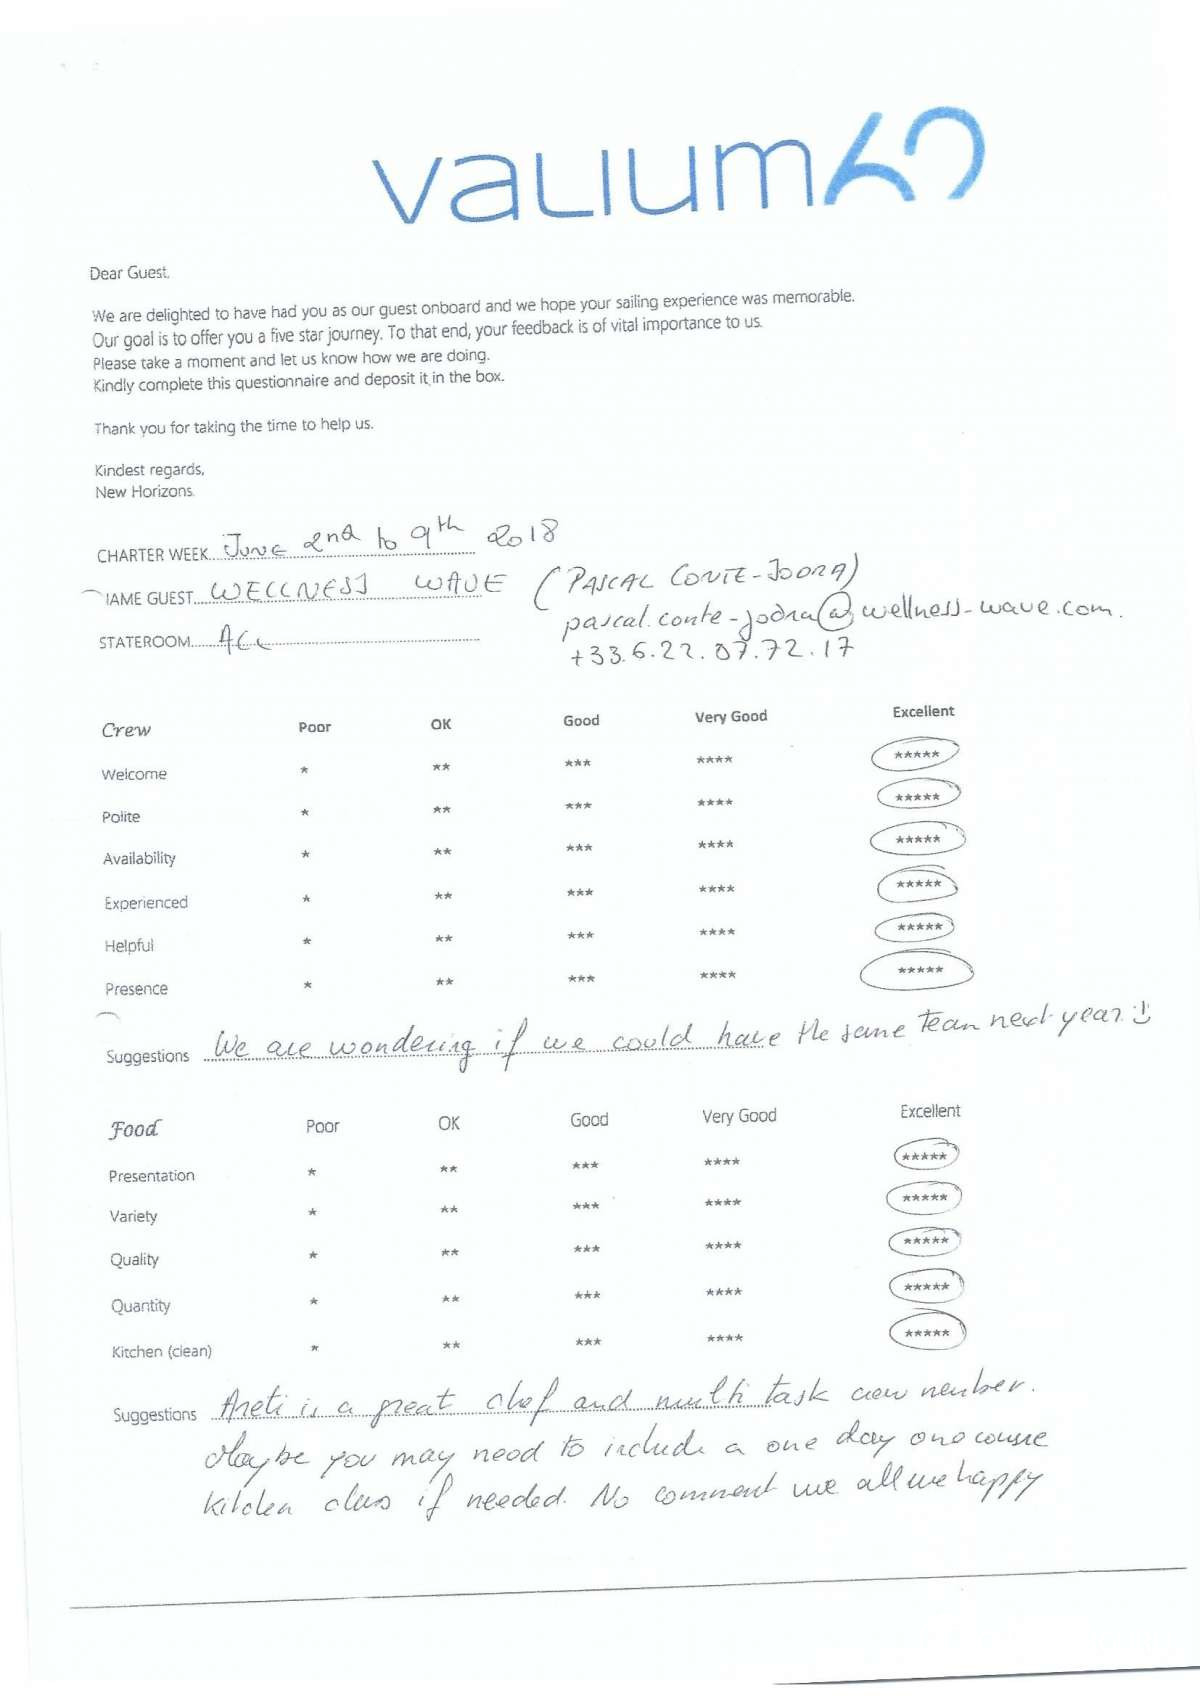 valium60
Dear Guest,
We are delighted to have had you as our guest onboard and we hope your sailing experience was memorable.
Our goal is to offer you a five star journey. To that end, your feedback is of vital importance to us.
Please take a moment and let us know how we are doing.
Kindly complete this questionnaire and deposit it in the box.
Thank you for taking the time to help us.
Kindest regards,
New Horizons.
CHARTER WEEK June 2nd to 9th 2018
IAME GUEST WELLNESS WAVE (PASCAL CONTE-JODRA)
pascal.conte-jodra@wellness-wave.com.
STATEROOM ALL
+33.6.22.07.72.17
Crew Poor OK Good Very Good Excellent
Welcome * ** *** **** *****
Polite * ** *** **** *****
Availability * ** *** **** *****
Experienced * ** *** **** *****
Helpful * ** *** **** *****
Presence * ** *** **** *****
Suggestions We are wondering if we could have the same team next year :)
Food Poor OK Good Very Good Excellent
Presentation * ** *** **** *****
Variety * ** *** **** *****
Quality * ** *** **** *****
Quantity * ** *** **** *****
Kitchen (clean) * ** *** **** *****
Suggestions Areti is a great chef and multi task crew member.
Maybe you may need to include a one day one course
kitchen class if needed. No comment we all we happy